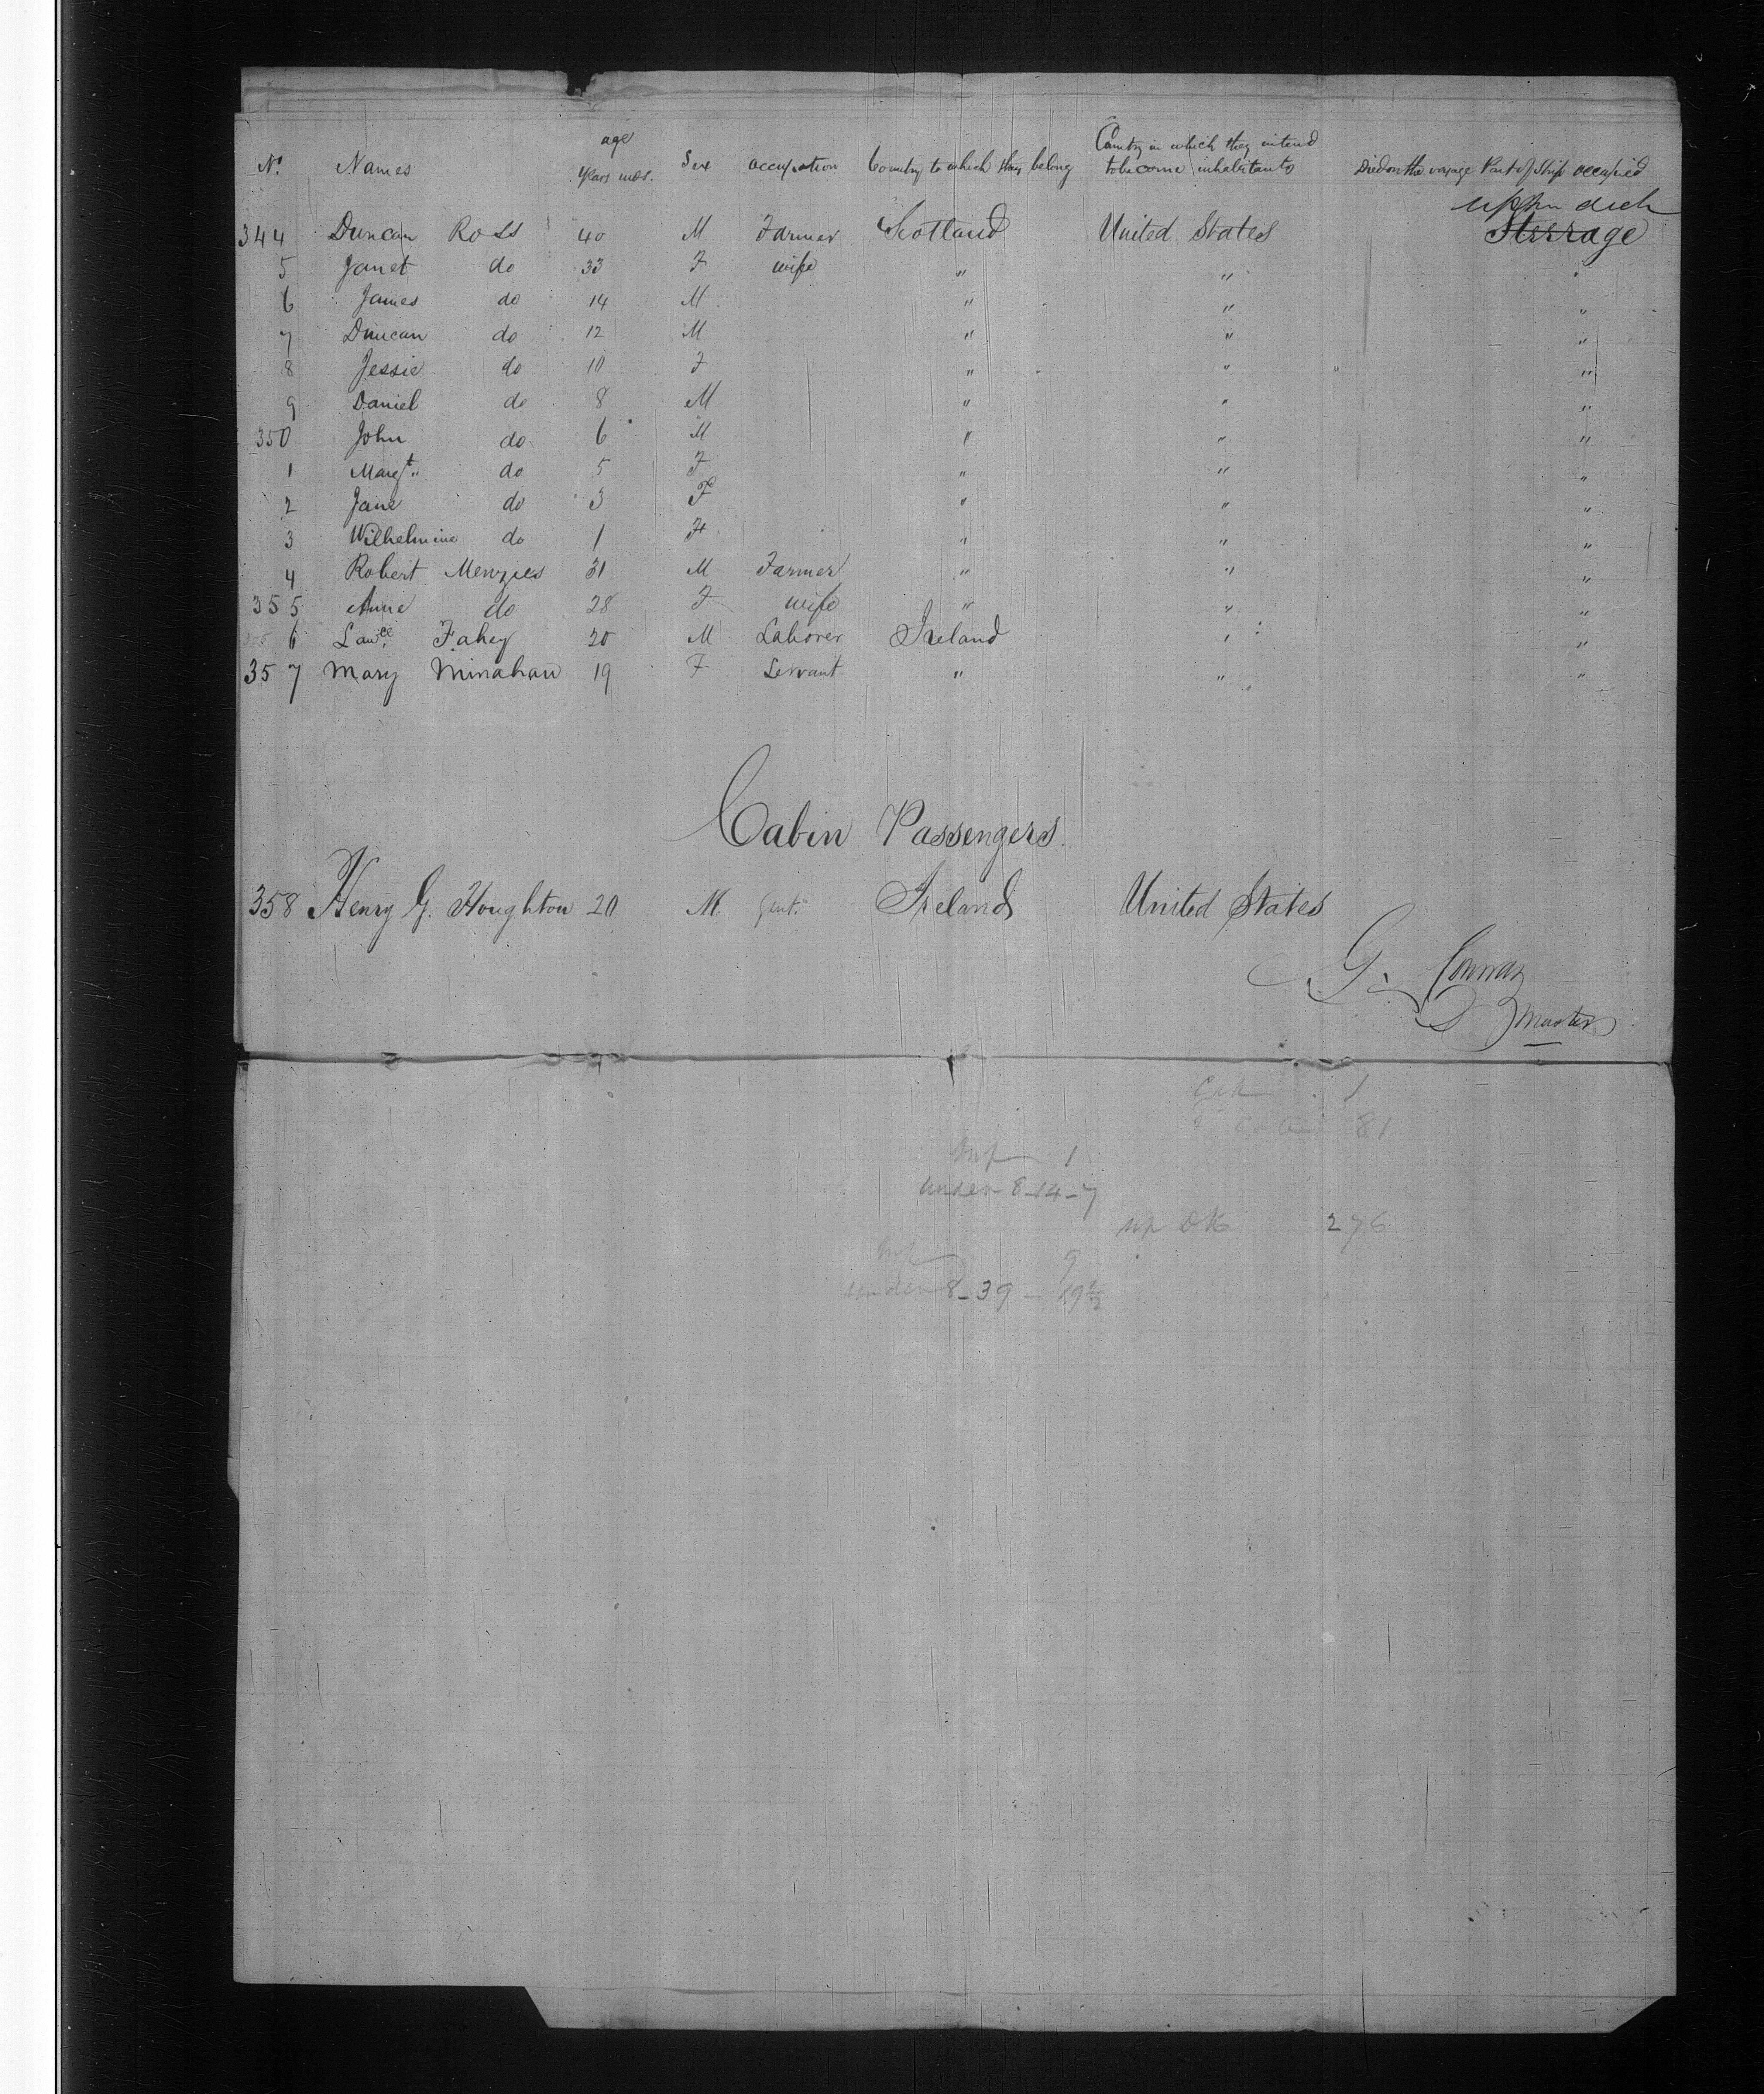 No. Names age Years mos. Sex occupation Country to which they belong Country in which they intend to become inhabitants Died on the voyage Part of Ship occupied
upper deck
344 Duncan Ross 40 M Farmer Scotland United States Sterrage
5 Janet do 33 F wife " " "
6 James do 14 M " " "
7 Duncan do 12 M " " "
8 Jessie do 10 F " " "
9 Daniel do 8 M " " "
350 John do 6 M " " "
1 Margt. do 5 F " " "
2 Jane do 3 F " " "
3 Wilhelmine do 1 F " " "
4 Robert Menzies 31 M Farmer " " "
355 Anne do 28 F wife " " "
6 Lawce. Fahey 20 M Laborer Ireland " "
357 Mary Minahan 19 F Servant " " "
Cabin Passengers.
358 Henry G. Houghton 20 M. Gent. Ireland United States
G. Conway
Master
Cab 1
81
Inf 1
under 8-14-7
up DK 276
Inf 9
under 8-39-19½